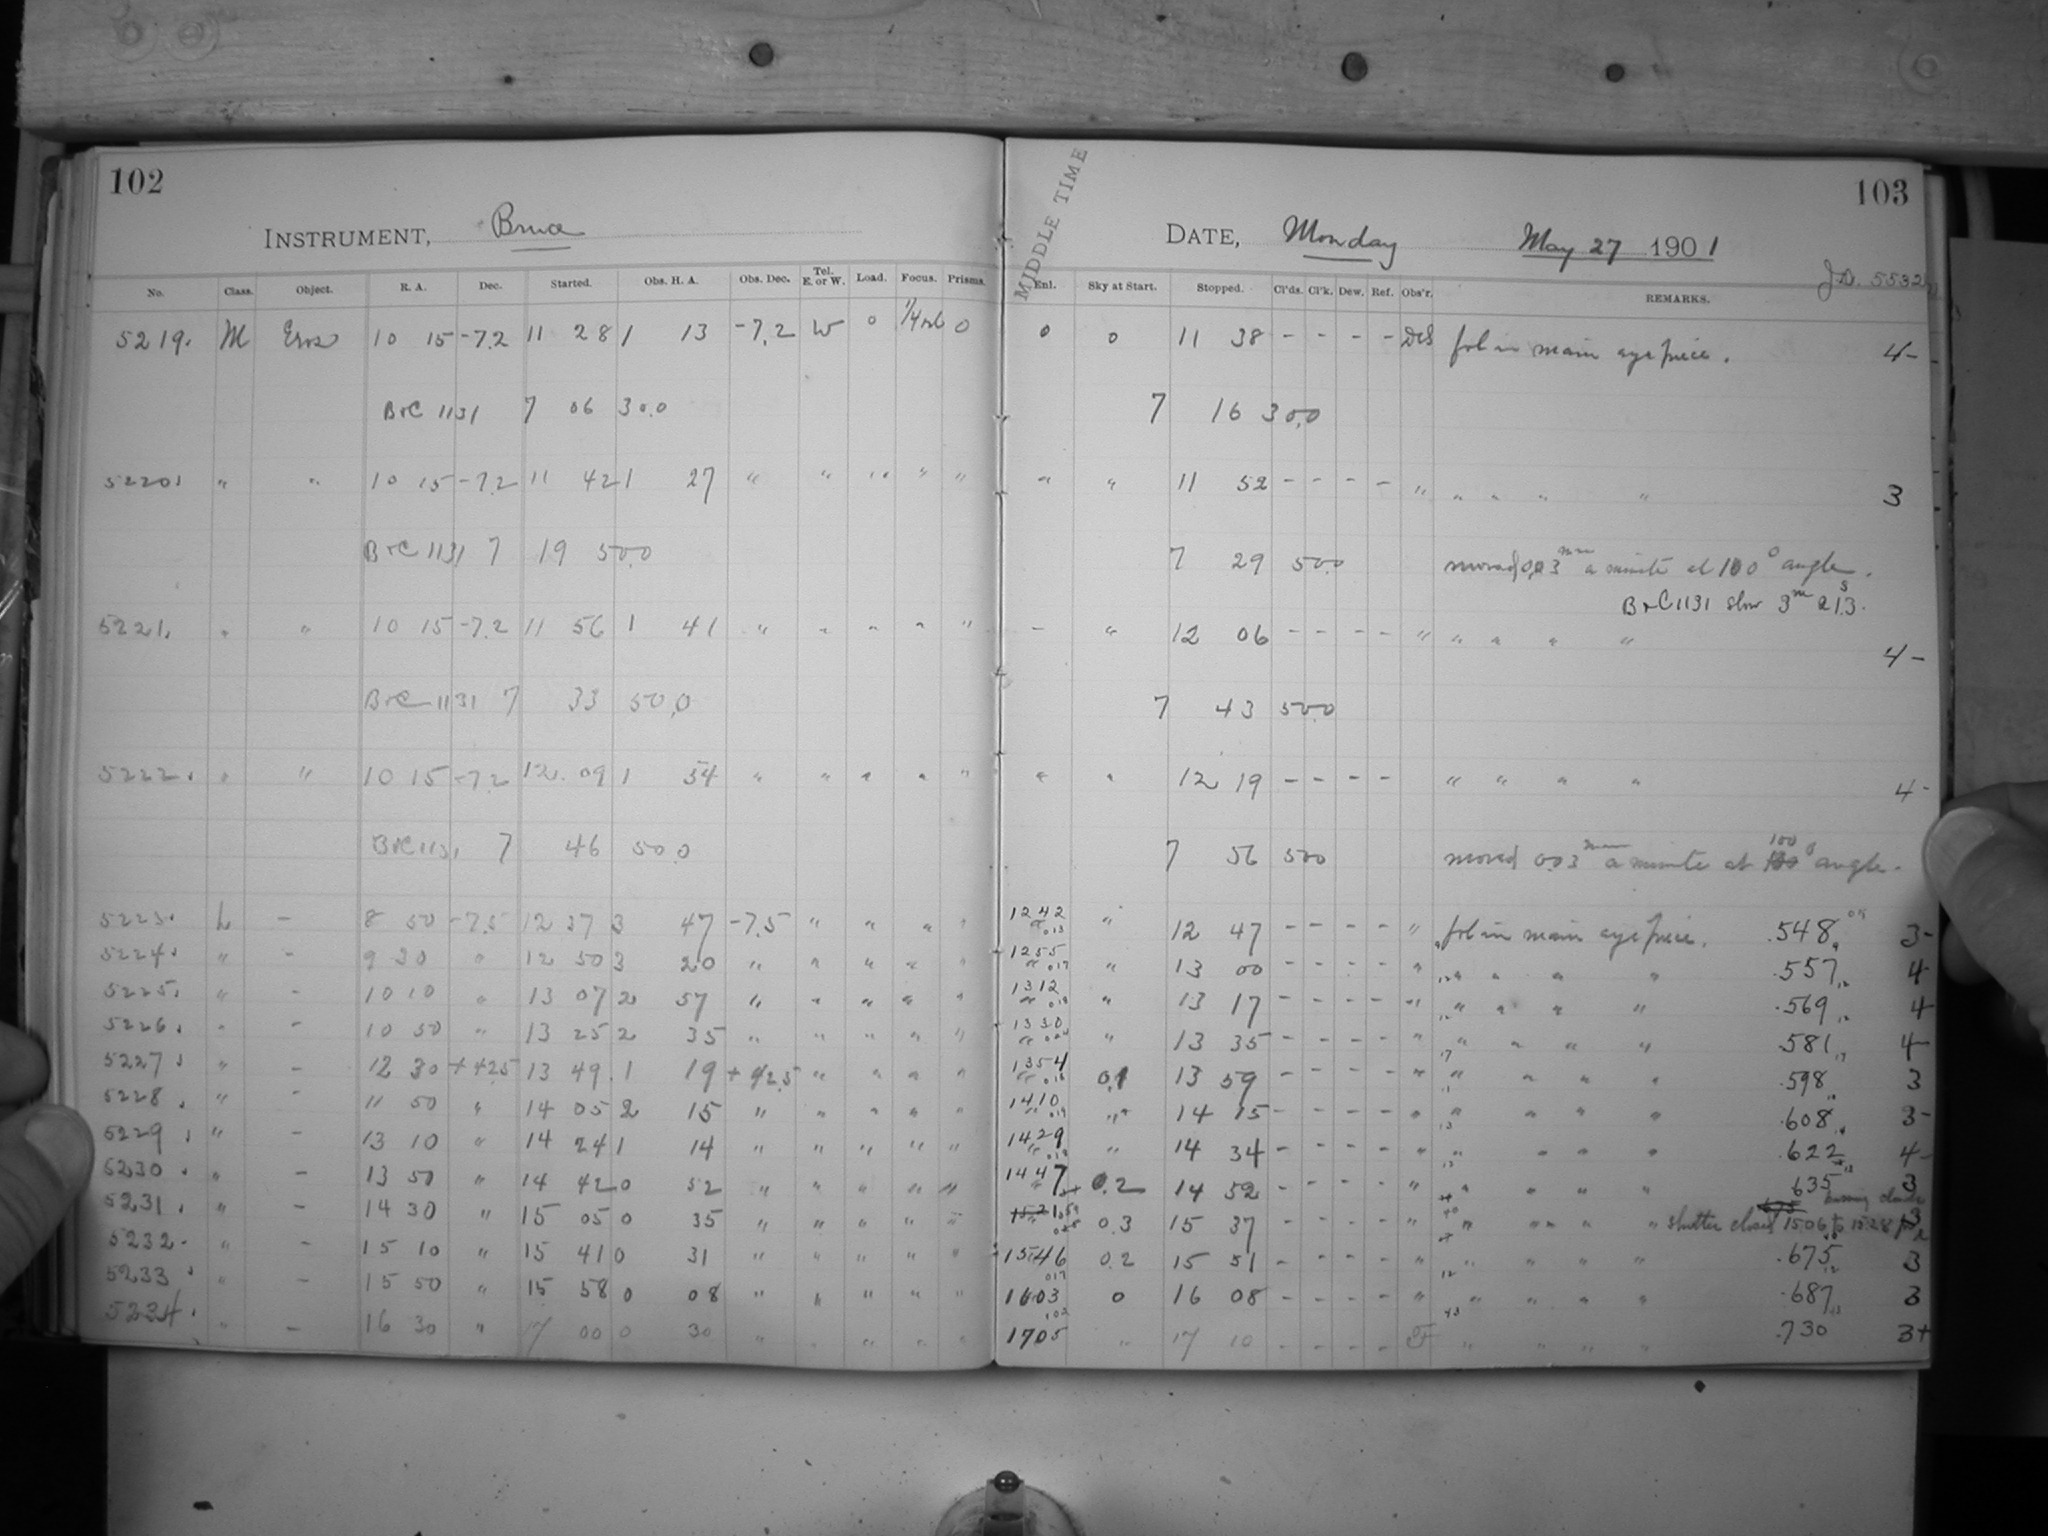 102
INSTRUMENT, Bruce
MIDDLE TIME
DATE, Monday May 27 1901
103
J.D. 5532
No. Class. Object. R. A. Dec. Started. Obs. H. A. Obs. Dec. Tel. E. or W. Load. Focus. Prisms. Enl. Sky at Start. Stopped. Cl'ds. Cl'k. Dew. Ref. Obs'r. REMARKS.
5219. M Eros 10 15 -7.2 11 28 1 13 -7.2 W 0 0 0 0 11 38 - - - - fol in main eyepiece. 4-
B+C 1131 7 06 30.0 7 16 30.0
5220. " " 10 15 -7.2 11 42 1 27 " " " " " " " 11 52 - - - - " " " " " 3
B+C 1131 7 19 50.0 7 29 50.0 moved 0.03 mm a minute at 100° angle.
B+C 1131 slow 3m 21.3s.
5221. " " 10 15 -7.2 11 56 1 41 " " " " " - " 12 06 - - - - " " " " " 4-
B+C 1131 7 33 50.0 7 43 50.0
5222. " " 10 15 -7.2 12 09 1 54 " " " " " " " 12 19 - - - - " " " " 4-
B+C 1131 7 46 50.0 7 56 50.0 moved 0.03 mm a minute at 100° angle.
5223. L - 8 50 -7.5 12 37 3 47 -7.5 " " " " 1242 " 12 47 - - - - " fol in main eyepiece. .548 3-
5224. " - 9 30 " 12 50 3 20 " " " " " 1255 " 13 00 - - - - " " " " " .557 4
5225. " - 10 10 " 13 07 2 57 " " " " " 1312 " 13 17 - - - - " " " " " .569 4
5226. " - 10 50 " 13 25 2 35 " " " " " 1330 " 13 35 - - - - " " " " " .581 4
5227. " - 12 30 +42.5 13 49 1 19 +42.5 " " " " 1354 0.1 13 59 - - - - " " " " " .598 3
5228. " - 11 50 " 14 05 2 15 " " " " " 1410 " 14 15 - - - - " " " " " .608 3-
5229. " - 13 10 " 14 24 1 14 " " " " " 1429 " 14 34 - - - - " " " " " .622 4-
5230. " - 13 50 " 14 42 0 52 " " " " " 1447 0.2 14 52 - - - - " " " " " .635 3
5231. " - 14 30 " 15 05 0 35 " " " " " 0.3 15 37 - - - - " " " " " shutter closed 15.06 to 15.28 passing clouds 3
5232. " - 15 10 " 15 41 0 31 " " " " " 1546 0.2 15 51 - - - - " " " " " .675 3
5233. " - 15 50 " 15 58 0 08 " " " " " 1603 0 16 08 - - - - " " " " " .687 3
5334. " - 16 30 " 17 00 0 30 " " " " " 1705 " 17 10 - - - - F " " " " .730 3+